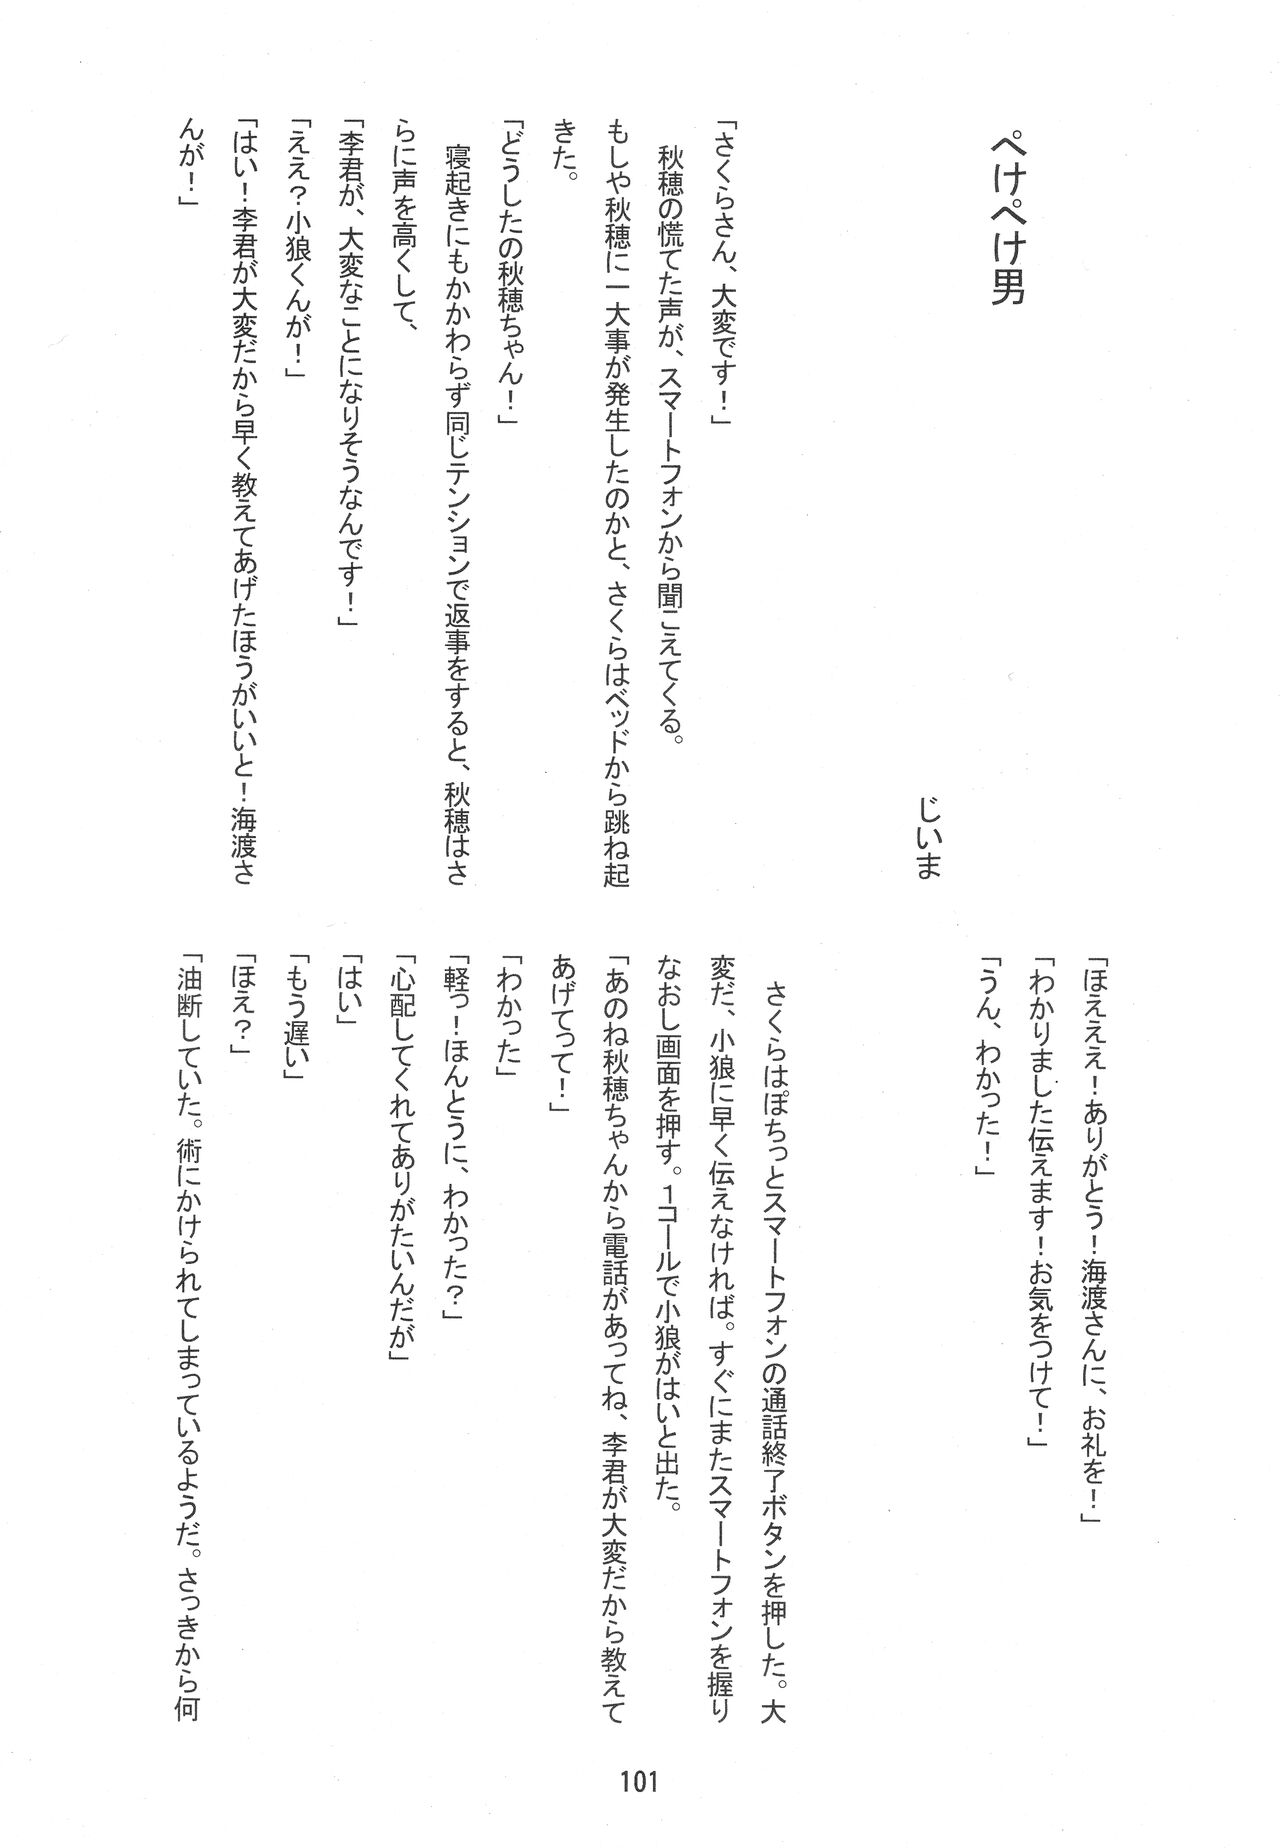 ぺけぺけ男
じいま
「さくらさん、大変です！」
秋穂の慌てた声が、スマートフォンから聞こえてくる。
もしや秋穂に一大事が発生したのかと、さくらはベッドから跳ね起
きた。
「どうしたの秋穂ちゃん！」
寝起きにもかかわらず同じテンションで返事をすると、秋穂はさ
らに声を高くして、
「李君が、大変なことになりそうなんです！」
「ええ？小狼くんが！」
「はい！李君が大変だから早く教えてあげたほうがいいと！海渡さ
んが！」
「ほえええ！ありがとう！海渡さんに、お礼を！」
「わかりました伝えます！お気をつけて！」
「うん、わかった！」
さくらはぽちっとスマートフォンの通話終了ボタンを押した。大
変だ、小狼に早く伝えなければ。すぐにまたスマートフォンを握り
なおし画面を押す。１コールで小狼がはいと出た。
「あのね秋穂ちゃんから電話があってね、李君が大変だから教えて
あげてって！」
「わかった」
「軽っ！ほんとうに、わかった？」
「心配してくれてありがたいんだが」
「はい」
「もう遅い」
「ほえ？」
「油断していた。術にかけられてしまっているようだ。さっきから何
101